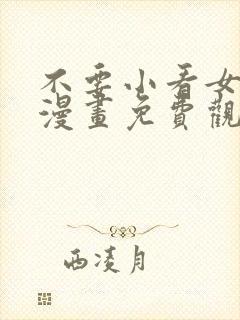 不要小看女
漫畫免費觀
西凌月